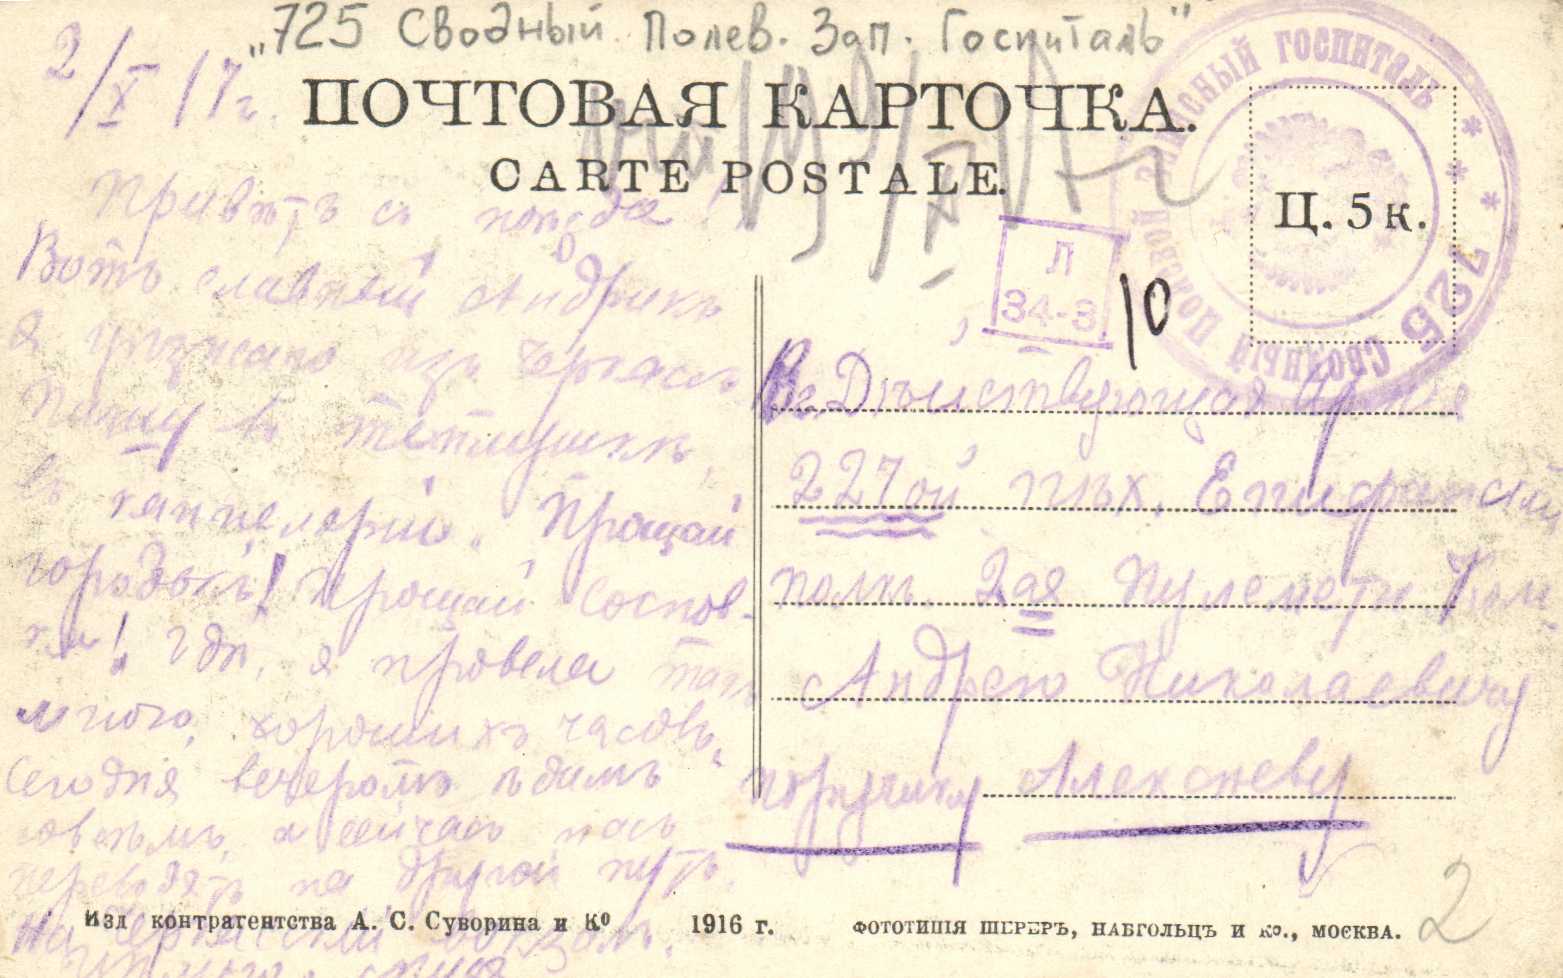 „725 Сводный Полев. Зап. Госпиталь"
2/X 17 г.
ПОЧТОВАЯ КАРТОЧКА.
CARTE POSTALE.
СВОДНЫЙ ПОЛЕВОЙ ЗАПАСНЫЙ ГОСПИТАЛЬ * * * 725
Ц. 5 к.
Л
34-3
10
Привѣтъ съ поѣзда!
Вотъ славный Андрикъ
я уѣзжаю изъ Черкассъ
Пишу въ теплушкѣ,
въ канцеляріи. Прощай
городокъ! Прощай Соснов-
ка! гдѣ я провела такъ
много хорошихъ часовъ.
Сегодня вечеромъ ѣдемъ
совсѣмъ, а сейчасъ насъ
переводятъ на другой путь.
на Черкасскій вокзалъ.
Въ Дѣйствующая Армія
227ой пѣх. Епифанскій
полкъ. 2ая Пулеметн. Ком.
Андрею Николаевичу
поручику Алексѣеву
Изд контрагентства А. С. Суворина и Ко 1916 г.
ФОТОТИПІЯ ШЕРЕРЪ, НАБГОЛЬЦЪ И КО., МОСКВА.
2